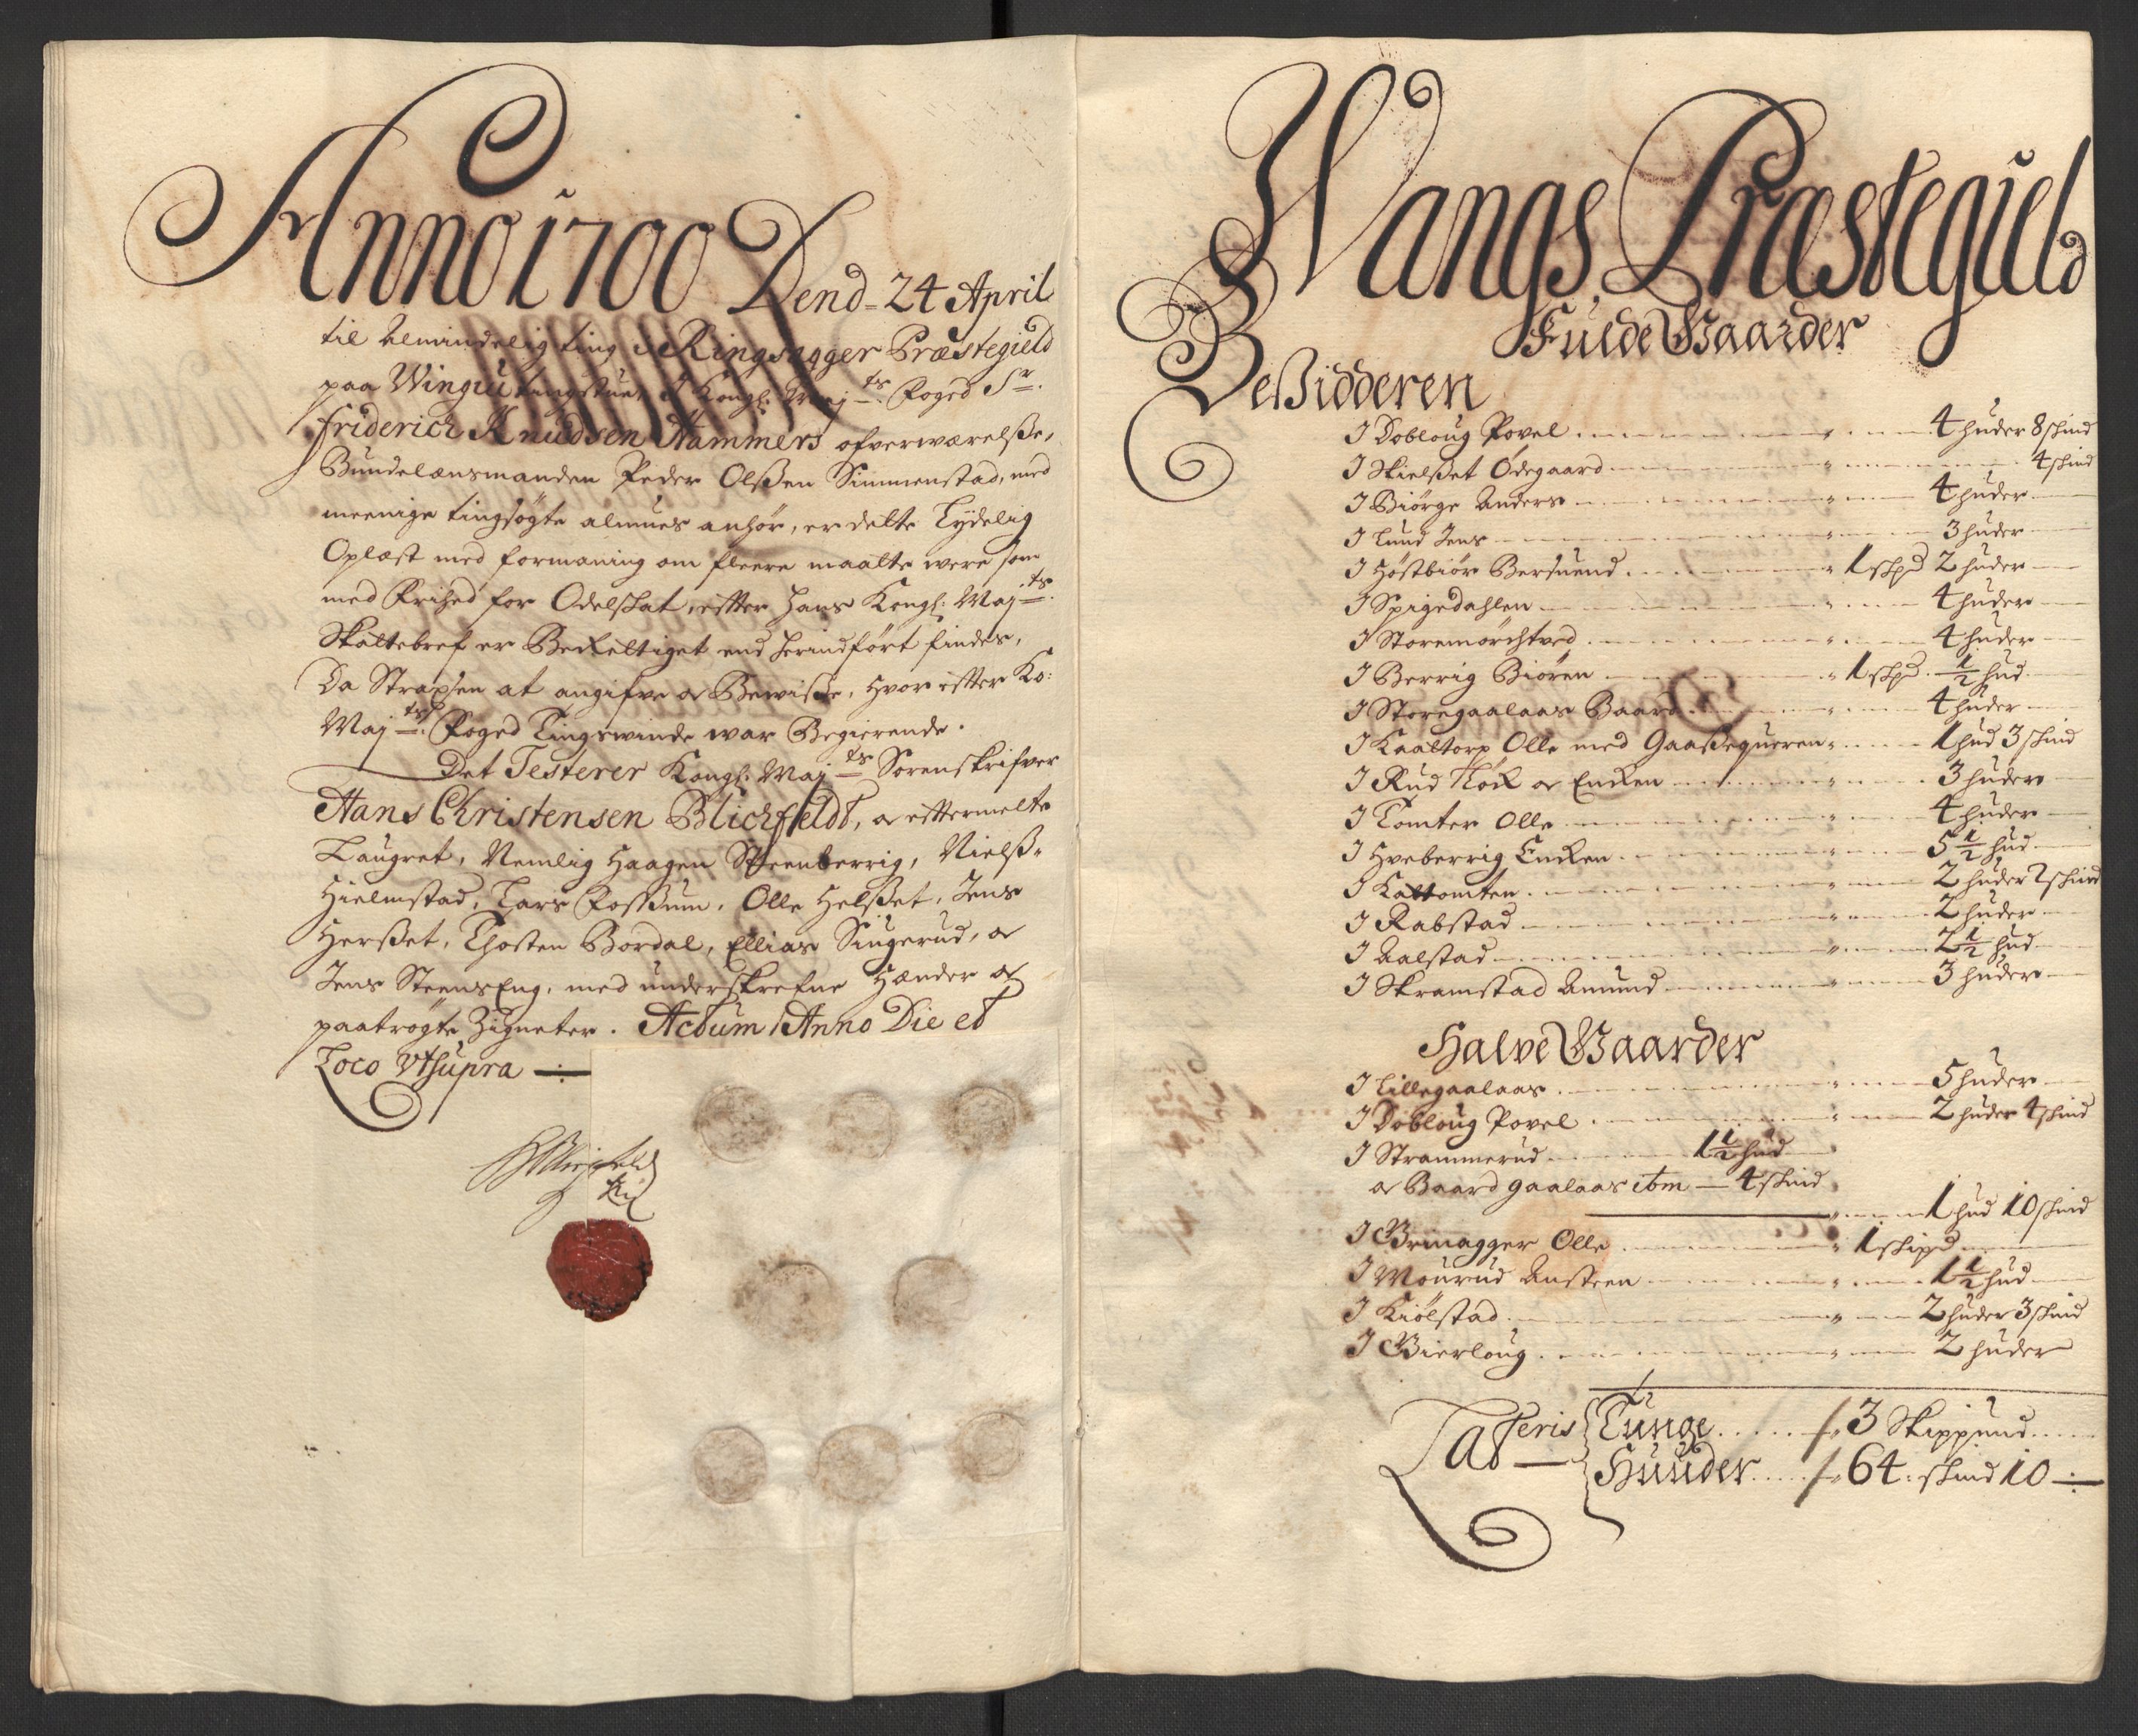 Anno 1700 Dend= 24 April
til Almindelig ting i Ringsagger Præstegield
paa Wingnü tingstue, I Kongl: Maj:ts Foged Sr.
Friderich Knudsen Hammers ofverwærelsße,
Bundelænsmanden Peder Olsßen Simmenstad, med
meenige tingsögte almues anhör, er dette Tydelig
Oplæst med formaning om fleere maatte were som
med Frihed for Odelskat, effter hans Kongl: Maj:ts
Skattebref er Berettiget end herindfört findes,
Da Strapsen at angifve og Bewisße, hvor effter Ko:
Maj:ts Foged Tingswinde war Begierende.
Det Testerer Kongl: Maj:ts Sorenskrifver
Hans Christensen Blichfeldt, og effternelte
Laugret, Nemlig Haagen Steenberrig, Nielß
Hielmstad, Lars Fossßum, Olle Helsßet, Jens
Hersßet, Thosten Bordal, Ellias Singerud, og
Jens SteensEng, med underskrefne Hænder og
paatrögte Zigneter. Actum Anno Die et
Loco Vtsupra
Wangs Præstegield
Fulde Gaarder
Beßidderen
I Dobloug Povel 4 huder 8 skind
I Skielsßet Ödegaard 4 skind
I Biörge Anders 4 huder
I Lund Jens 3 huder
I Höstbiör Bersuend 1 skpd 2 huder
I Spigedahlen 4 huder
I Storemörchtved 4 huder
I Berrig Biören 1 skpd. 1/2 hud
I Storegaalaas Baard 4 huder
I Kaaltorp Olle med Gaasßequeren 1 hud 3 skind
I Rud og Encken 3 huder
I Tomter Olle 4 huder
I Hveberrig Encken 5 1/2 hud
I Kattomten 2 huder 2 skind
I Rabstad 2 huder
I Aalstad 2 1/2 hud
I Skramstad Amund 3 huder
Halve Gaarder
I Lillegaalaas 5 huder
I Dobloug Povel 2 huder 4 skind
I Strammerud 1 1/2 hud
og Baard gaalaas ibm 4 skind
1 hud 10 skind
I Grinagger Olle 1 skipd
I Mourud Ansteen 1 1/2 hud
I Kiölstad 2 huder 3 skind
I Gierloug 2 huder
Lateris Tunge 3 Skippund
Huuder 64: skind 10